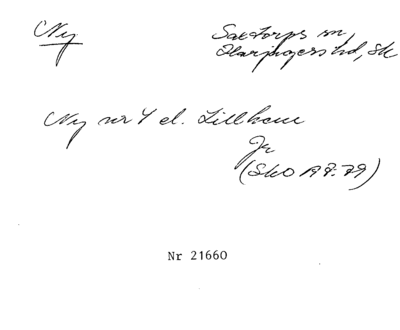 Ny
Saxtorps sn,
Harjagers hd, Sk
Ny nr 4 el. Lillhem
Jr
(SkO 19 : 79)
Nr 21660